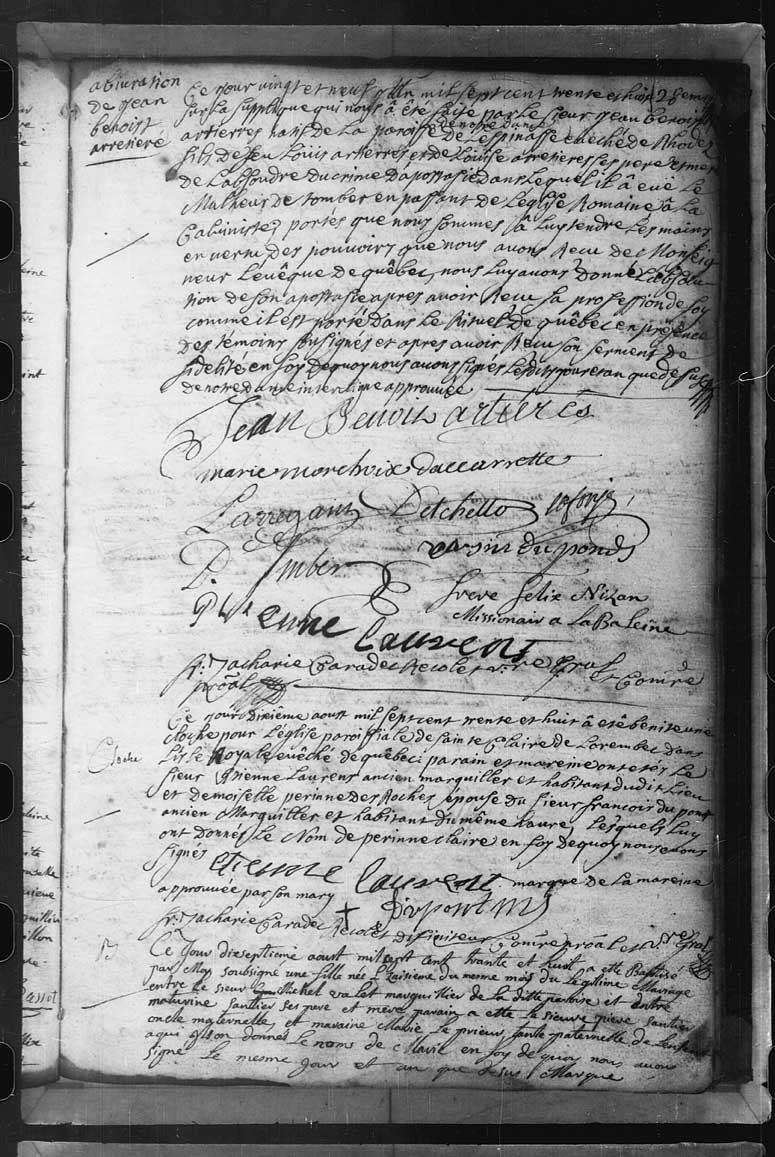 abjuration
de jean
benoist
arretieré
Ce jour vingt et neuf mil sept cent trente et huit
sur la supplique qui nous â été faite par le sieur jean benoist
artierres natif de la paroisse de Lespinasse evêché de Rhodez
de notre dame
fils de feu Louis artierres et de Louise arretierres ses pere et mere
de Labsoudre du crime Dapostasie dans lequel il â eué Le
Malheur de tomber en passant de Leglise Romaine â La
Calviniste, portes que nous sommes â Luy tendre Les mains
en vertu des pouvoirs que nous avons Recu de Monseig
neur Levêque de québec, nous Luy avons Donné Labsolu
tion de son apostasie apres avoir Recu sa profession de foy
comme il est porté Dans Le Rituel De québec en présence
Des temoins sousignés et apres avoir Recu son serment de
fidelité en foy De quoy nous avons signés Lesdits jour et an que de sus
de notre dame interligne approuvée
Jean Benoit artieres
marie morchoix daccarrette
Larregant Detchetto lafonje
P. Imber
dupond
frere felix Nizan
Missionair a La Baleine
etienne laurent
fr. Zacharie Caradec Recolet vre gral
et Comre
proãl
Cloche
Ce jour dixiême aoust mil sept cent trente et huit â etê benite une
cloche pour Léglise paroissiale de sainte Claire de Lorembec dans
Lisle Royale evêché de québec; parain et mareine ont etés Le
sieur Etienne Laurens ancien marguiller et habitant dudit Lieu
et demoiselle perinne des Roches épouse du sieur francois du pont
ancien Marguiller et habitant du même havre, Lesquels Luy
ont Donnés Le Nom de perinne claire en foy de quoy nous avons
signés
etienne laurent marque de La mareine
approuvée par son mary + Dupont
fr. Zacharie Caradec Recolet difiniteur Comre proãl et vre gral
B
Ce Jour dixseptieme aoust mil sept cent trante et huit a ette Baptisé
par Moy soubsigné une fille née Le traisieme du mesme mois du Legitime Mariage
entre Le sieur Michel valet marguillier de La ditte paroise et entre
maturine santier ses pere et mere parain a ette Le sieure piere santier
oncle maternelle, et maraine Marie Le prieur tante paternelle de Lenfant
a qui ils on donnés Le noms de Marie en foy de quoy nous avons
signé Le mesme Jour et an que desus Marque